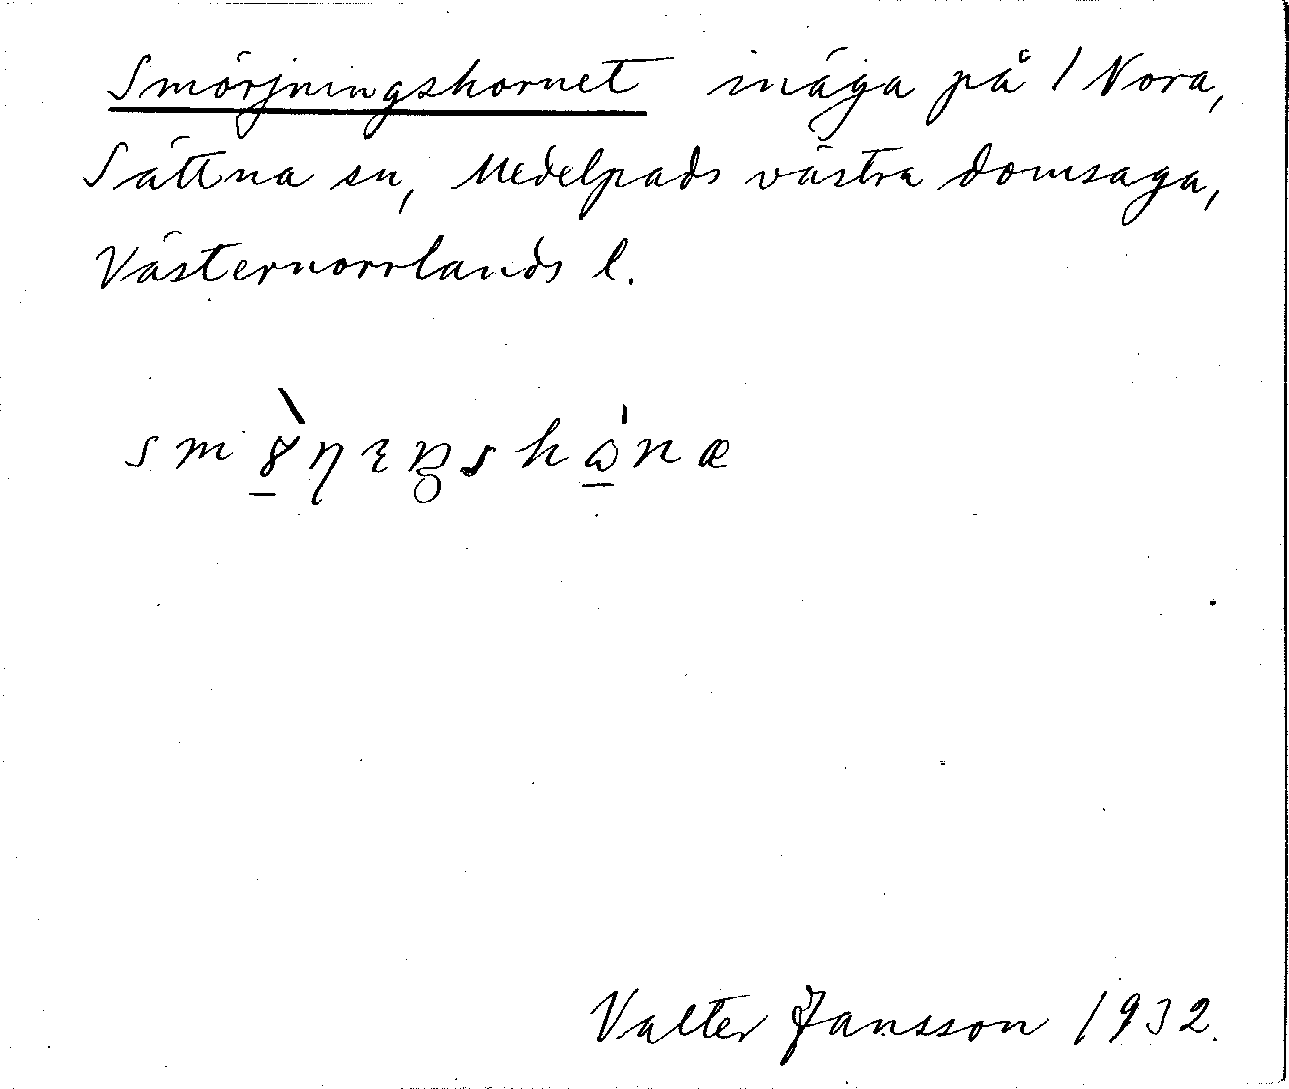 Smörjningshornet inäga på 1 Nora,
Sättna sn, Medelpads västra domsaga,
Västernorrlands l.
Valter Jansson 1932.